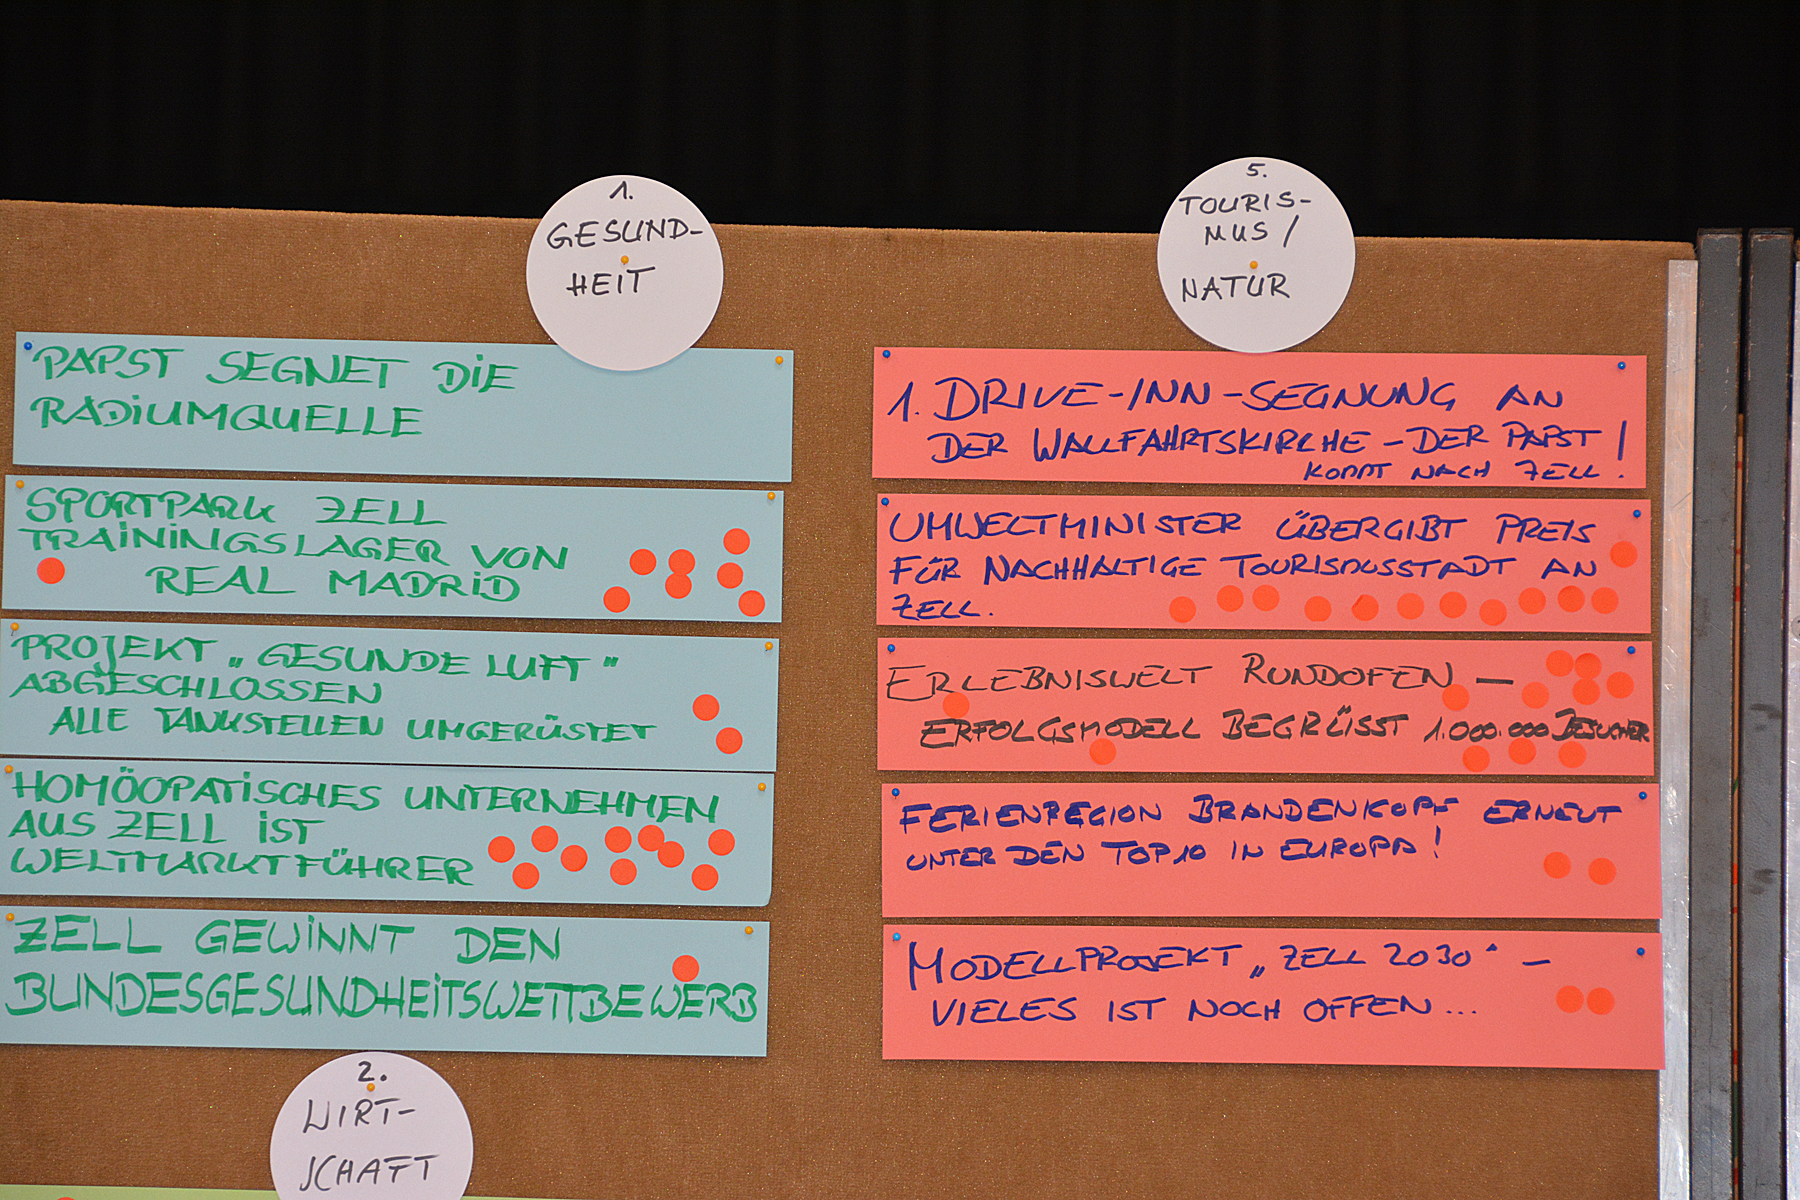 1.
GESUND-
HEIT
PAPST SEGNET DIE
RADIUMQUELLE
SPORTPARK ZELL
TRAININGSLAGER VON
REAL MADRID
PROJEKT „GESUNDE LUFT"
ABGESCHLOSSEN
ALLE TANKSTELLEN UMGERÜSTET
HOMÖOPATISCHES UNTERNEHMEN
AUS ZELL IST
WELTMARKTFÜHRER
ZELL GEWINNT DEN
BUNDESGESUNDHEITSWETTBEWERB
2.
WIRT-
SCHAFT
5.
TOURIS-
MUS /
NATUR
1. DRIVE-INN-SEGNUNG AN
DER WALLFAHRTSKIRCHE - DER PAPST
KOMMT NACH ZELL!
UMWELTMINISTER ÜBERGIBT PREIS
FÜR NACHHALTIGE TOURISMUSSTADT AN
ZELL.
ERLEBNISWELT RUNDOFEN —
ERFOLGSMODELL BEGRÜSST 1.000.000 BESUCHER
FERIENREGION BRANDENKOPF ERNEUT
UNTER DEN TOP 10 IN EUROPA!
MODELLPROJEKT „ZELL 2030" –
VIELES IST NOCH OFFEN...